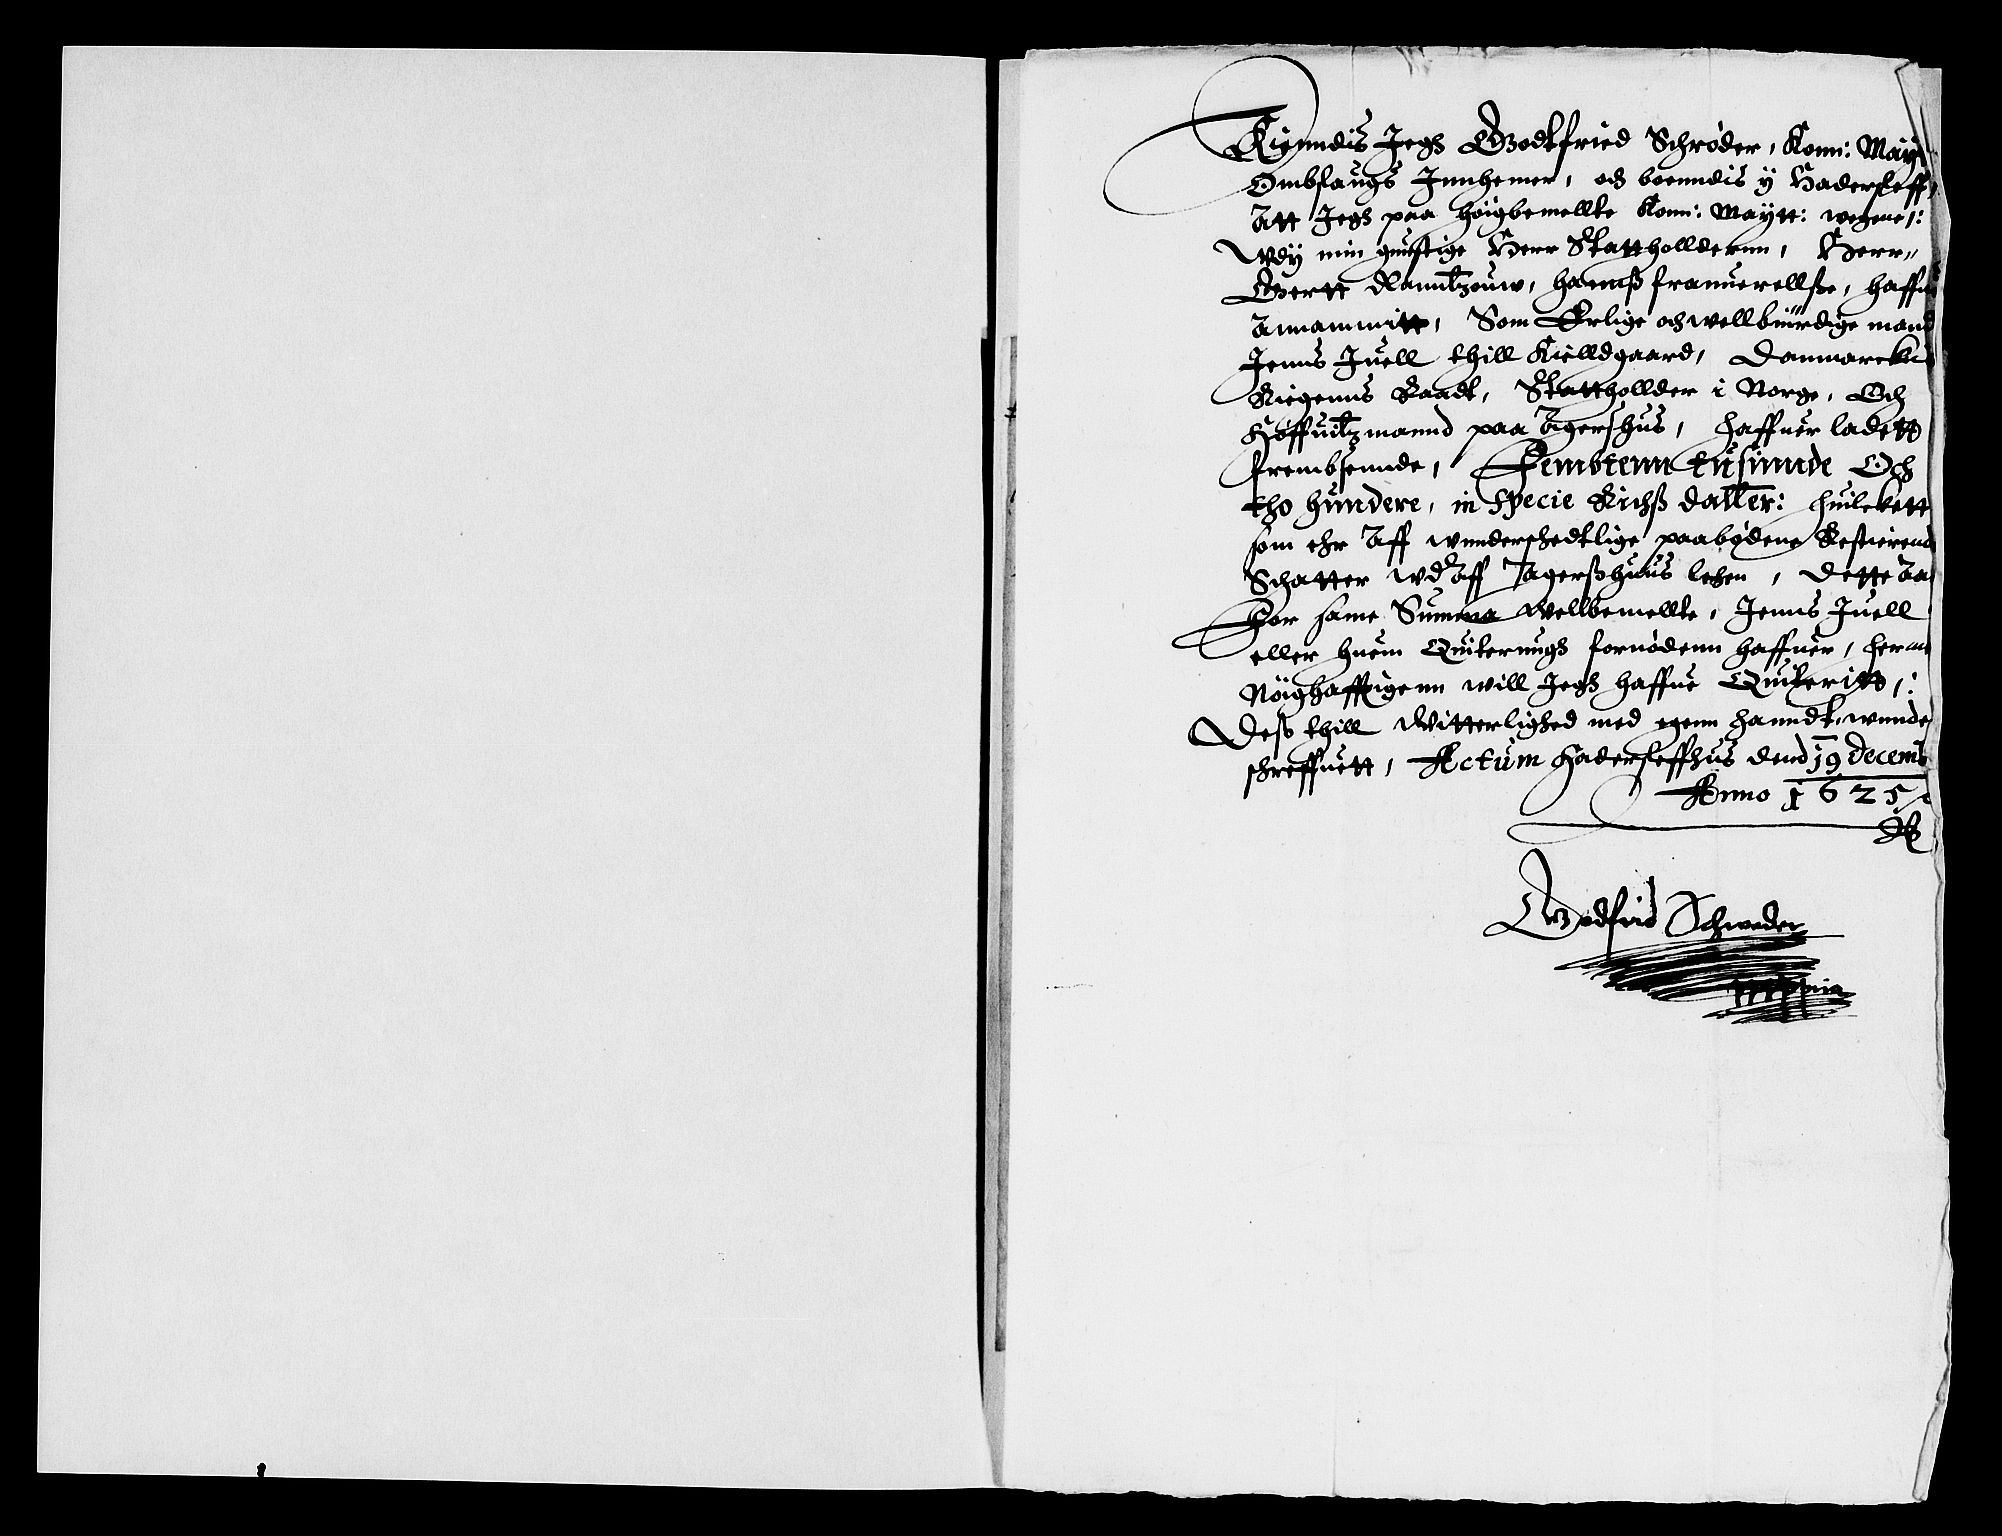 Kienndis Jegh Godtfried Schrøder, Konn: May
Ombslaugs Innhemer, och boenndis ÿ Hadersleff,
Att Jegh paa høigbemellte Konn: Maytt: wegene,:
Wdÿ min gunstige Herr Stattholldernn, Herr
Gertt Ranntzouw, hannß frauuerellsse, haffue
Annammitt, Som Erlige och wellbiurdige mand
Jenns Juell thill Kielldgaard, Danmarckens
Riegenns Raadt, Stattholder i Norge, Och
Høffuitzmannd paa Agershus, haffuer ladett
frembsennde, Fembtenn tusinnde Och
tho hundere, in Specie Richß daller: huilckett
som ehr Aff wunderschedtlige paabødene Restierende
Schatter wd Aff Agerßhuus lehen, Dette Aa
For same Summa wellbemellte, Jenns Juell
eller huem Quiterungh fornødenn haffuer, her
Nøighafftigenn will Jegh haffue Quiteritt,:
Dess thill Witterlighed med egenn hanndt, wunde
schreffuett, Actum Haderslefhus dend 19 decemb
Anno 1625
Godfrid Schrøder